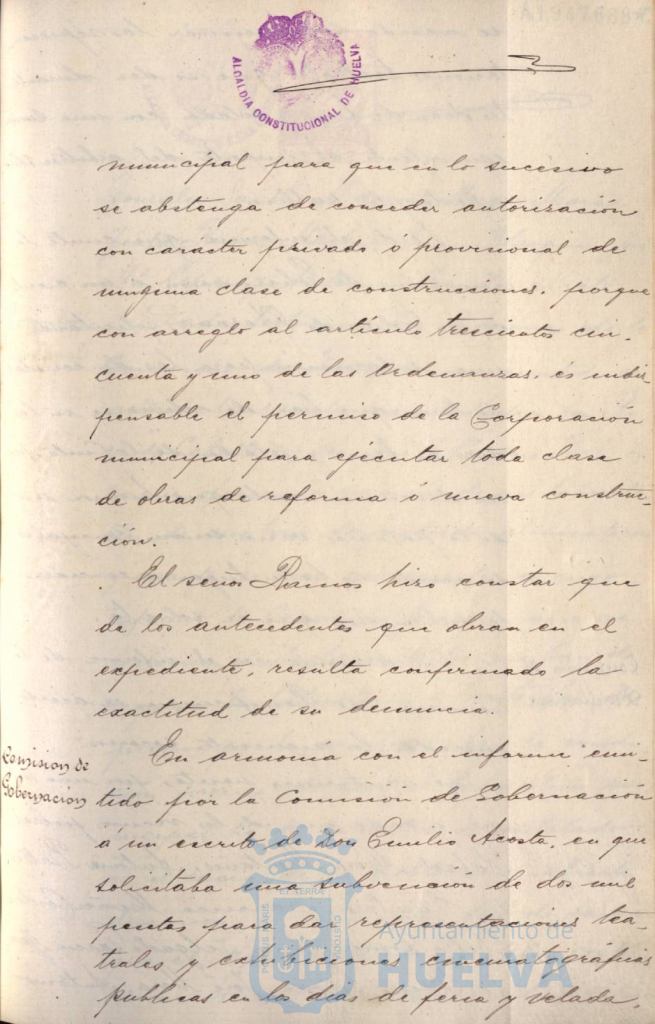 ALCALDIA CONSTITUCIONAL DE HUELVA
municipal para que en lo sucesivo
se abstenga de conceder autorización
con carácter privado ó provisional de
ninguna clase de construcciones, porque
con arreglo al artículo trescientos cin-
cuenta y uno de las Ordenanzas, és indis-
pensable el permiso de la Corporación
municipal para ejecutar toda clase
de obras de reforma ó nueva construc-
ción.
El señor Ramos hizo constar que
de los antecedentes que obran en el
expediente, resulta confirmado la
exactitud de su denuncia.
Comision de
Gobernación
En armonía con el informe emi-
tido por la Comisión de Gobernación
á un escrito de Don Emilio Acosta, en que
solicitaba una subvención de dos mil
pesetas para dar representaciones tea-
trales y exhibiciones cinematográficas
publicas en los dias de feria y velada,
Ayuntamiento de
HUELVA